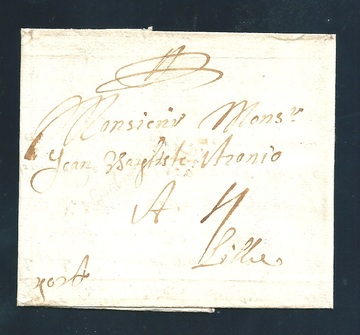 Monsieur Monsr
Jean Baptiste Stronio
A 4
Lille
port